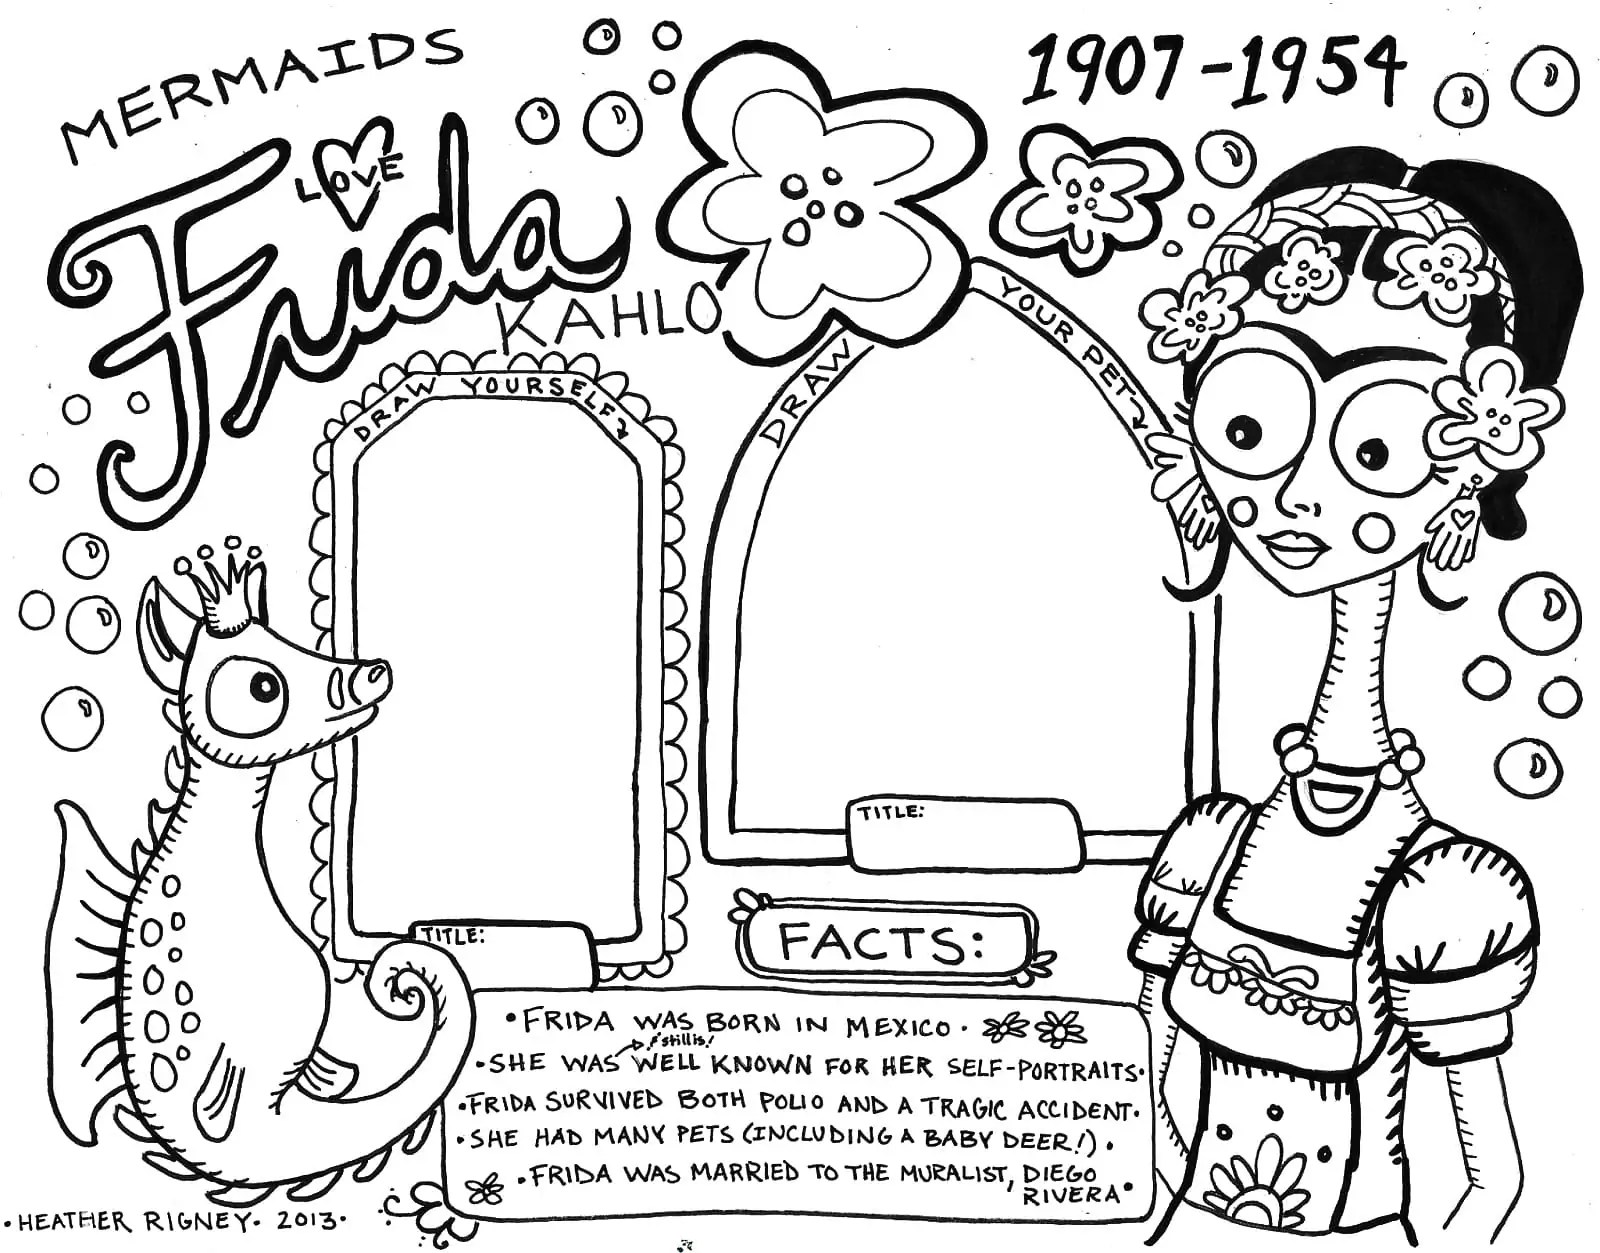 MERMAIDS
LOVE
Frida
KAHLO
1907-1954
DRAW YOURSELF
DRAW YOUR PET
TITLE:
TITLE:
FACTS:
•FRIDA WAS BORN IN MEXICO•
& still is!
•SHE WAS WELL KNOWN FOR HER SELF-PORTRAITS•
•FRIDA SURVIVED BOTH POLIO AND A TRAGIC ACCIDENT•
•SHE HAD MANY PETS (INCLUDING A BABY DEER!)•
•FRIDA WAS MARRIED TO THE MURALIST, DIEGO
RIVERA•
•HEATHER RIGNEY• 2013•